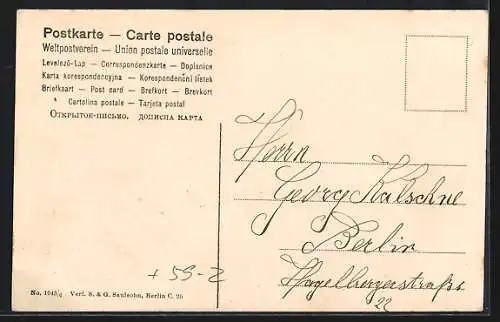 Postkarte — Carte postale
Weltpostverein — Union postale universelle
Levelező-Lap — Correspondenzkarte — Dopisnice
Karta korespondencyjna — Korespondenční lístek
Briefkaart — Post card — Brefkort — Brevkort
Cartolina postale — Tarjeta postal
Открытое-письмо. дописна карта
Herrn
Georg Kalschne
Berlin
Hagelbergerstraße
22
+ 59-2
No. Verl. S. & G. Saulsohn, Berlin C. 25